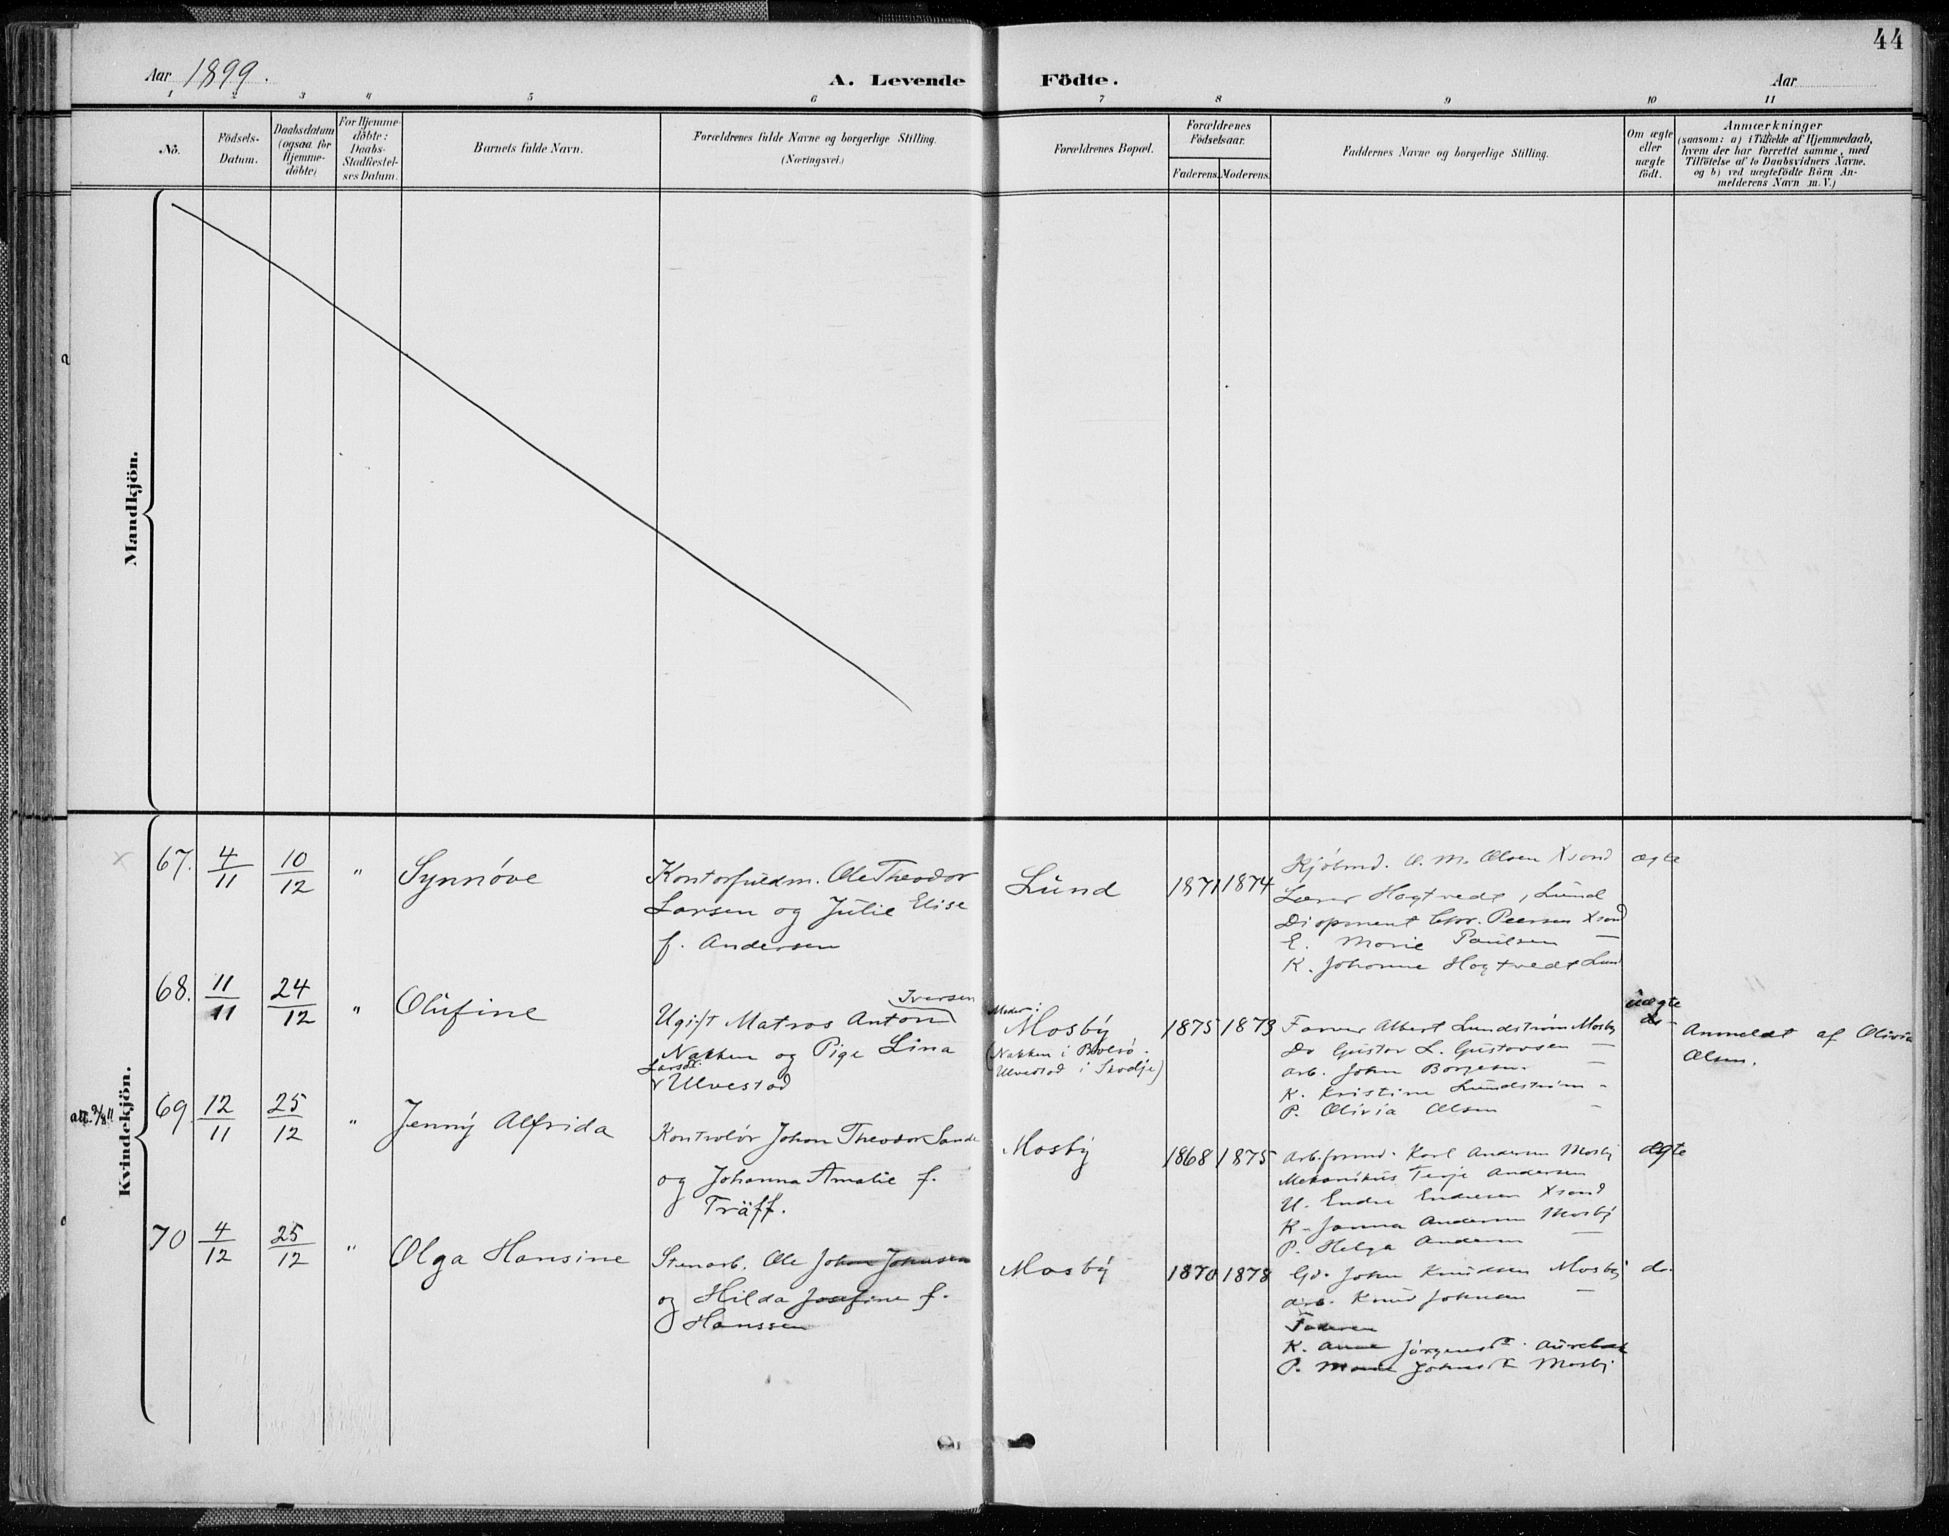 44
Aar 1899.
A. Levende Födte.
Aar
1 2 3 4 5 6 7 8 9 10 11
Nö.
Födsels-
Datum.
Daabsdatum
(ogsaa for
Hjemme-
döbte)
For Hjemme-
döbte:
Daabs-
Stadfæstel-
ses Datum.
Barnets fulde Navn.
Forældrenes fulde Navne og borgerlige Stilling.
(Næringsvei.)
Forældrenes Bopæl.
Forældrenes
Födselsaar.
Faderens. Moderens.
Faddernes Navne og borgerlige Stilling.
Om ægte
eller
uægte
födt.
Anmærkninger
(saasom: a) i Tilfælde af Hjemmedaab,
hvem der har forrettet samme, med
Tilföielse af to Daabsvidners Navne.
og b) ved uægtefödte Börn An-
melderens Navn m. V.)
Mandkjön.
Kvindekjön.
67. 4/11 10/12 " Synnöve
Kontorfuldm. Ole Theodor
Larsen og Julie Elise
f. Andersen
Lund
1871 1874
Kjöbmd. O. M. Olsen Xsand
Lærer Hogtvedt, Lund
Disponent Chr. Peersen Xsand
E. Marie Paulsen —
K. Johanne Hogtvedt Lund
ægte
68. 11/11 24/12 " Olufine
Iversen
Ugift Matros Anton
Nakken og Pige Lina
Larsdt.
Ulvestad
Moder:
Mosby
(Nakken i
Ulvestad i Skodje)
1875 1873
Farver Albert Lundström Mosby
Do Gustav L. Gustavsen —
Arb. John Borgesen
K. Kristine Lundström -
P. Olivia Olsen —
uægte
Anmeldt af Olivia
Olsen.
69. 12/11 25/12 " Jenny Alfrida
Kontrolör Johan Theodor Sande
og Johanna Amalie f.
Träff.
Mosby
1868 1875
Arb.formd. Karl Andersen Mosby
Mekanikus Terje Andersen
U. Endre Endresen Xsand
K. Janna Andersen Mosby
P. Helga Andersen —
ægte
70 4/12 25/12 " Olga Hansine
Stenarb. Ole Johan Johnsen
og Hilda Josefine f.
Hanssen
Mosby
1870 1878
Gd. John Knudsen Mosby
Arb. Knud Johnsen —
Faderen
K. Anne Jörgensdt.
P. Marie Mosby
do.